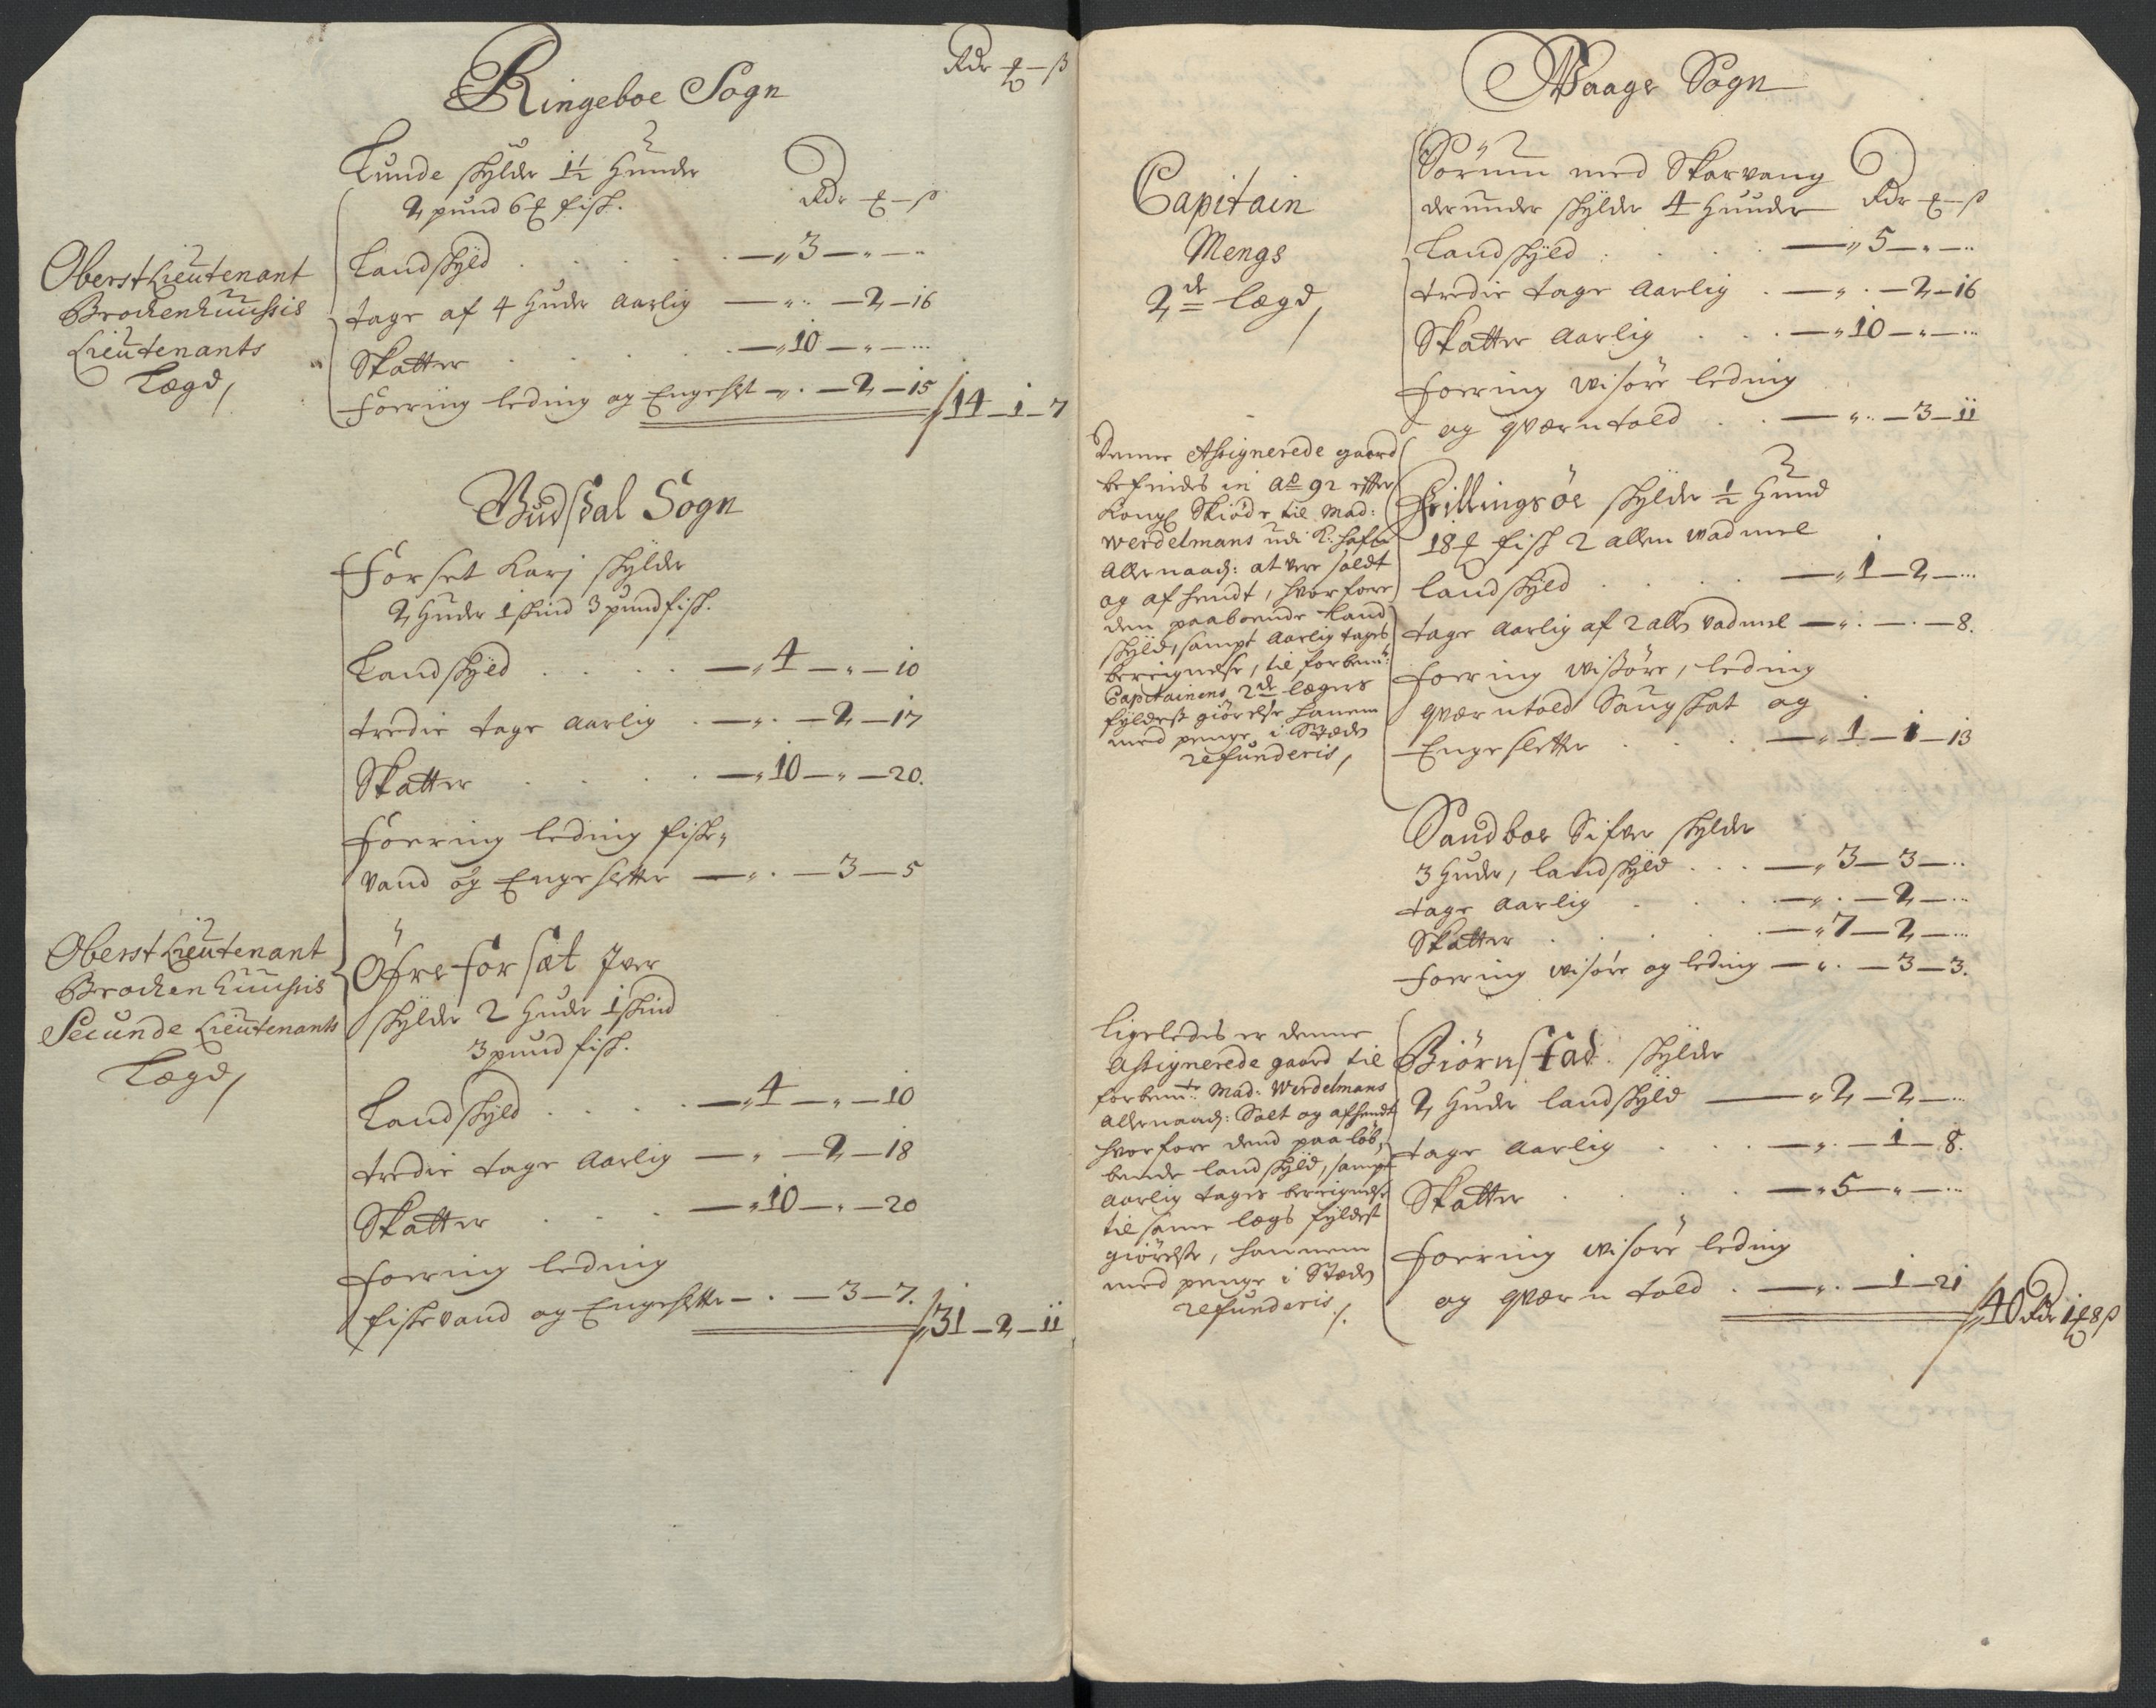 Ringeboe Sogn
Rdr ℔ ß
Lunde skylder 1½ Hunder
2 pund 6 ℔ fisk.
Rdr ℔ ß
Oberst Lieutenant
Brockenhuussis
Lieutenants
Lægd/
Landskyld . . . . . — „ 3 — „ — ...
tage af 4 Huder Aarlig — „ .. — 2 — 16
Skatter . . . . — „ 10 — „ — ...
Foering leding og Engeslet — „ . — 2 — 15
14 — 1 — 7
Budsdal Sogn
Forset Karj skylder
2 Huder 1 skind 3 pund fisk.
Landskyld . . . . — „ 4 — „ — 10
tredie tage Aarlig . — „ . — 2 — 17
Skatter . . . . — „ 10 — „ — 20.
Foering leding fiske„
vand og Engesletter — „ . — 3 — 5
Oberst Lieutenant
Brockenhuussis
Secunde Lieutenants
Lægd/
Öfre Forsæt Iver
skylder 2 Huder 1 skind
3 pund fisk.
Landskyld . . . . — „ 4 — „ — 10
tredie tage Aarlig — „ — 2 — 18
Skatter . . . — „ 10 — „ — 20
Foering leding
fiskevand og Engesletter — . — 3 — 7.
31 — 2 — 11
Waage Sogn
Capitain
Mengs
2de lægd/
Sörum med Skarvang
derunder skylder 4 Hunder
Rdr ℔ ß
Landskyld . . . — „ 5 — „ — ..
tredie tage Aarlig . — „ . — 2 — 16
Skatter Aarlig . . . — „ 10 — „ — ...
Foering wisöre leding
og qværntold . . — „ .. — 3 — 11
Denne Assignerede gaard
befindes in Ao 92 effter
Kongl Skiöde til Mad:
Werdelmans udi K:hafn
Allernaad: at vere soldt
og afhendt, hvorfore
den paaboende Land
skyld, sampt Aarlig tages
beregnelse, til forbem:
Capitainens 2de lægers
fyldest giörelse hanem
med penge i Stæden
refunderis/
Grillingsöe skylder ½ Hund
18 ℔ fisk 2 allen wadmel
landskyld . . . . — „ 1 — 2 — ...
tage Aarlig af 2 allen vadmel — „ . — . — 8.
Foering wisöre, leding
qværntold Saugskat og
Engesletter . . . — „ 1 — 1 — 13
Sandboe Sifver skylder
3 Huder, landskyld . . . — „ 3 — 3 — ..
tage Aarlig . . . — „ . — 2 — ...
Skatter . . . . — „ 7 — 2 — ...
Foering wisöre og leding — „ . — 3 — 3.
Ligeledes er denne
Assignerede gaard til
forbem:te Mad: Werdelmans
Allernaad: Solt og afhendt
hvorfore dend paa löb„
bende landskyld, sampt
Aarlig tages beregnelse
til samme lægs fyldest
giörelse, hannem
med penge i Stæden
refunderis/.
Biörnstad skylder
2 Huder landskyld — „ 2 — 2 — ...
tage Aarlig . . . — „ . — 1 — 8.
Skatter . . . . — „ 5 — „ — ...
Foering wisöre leding
og qværn told . — „ . — 1 — 21
40 Rdr 1 ℔ 8 ß